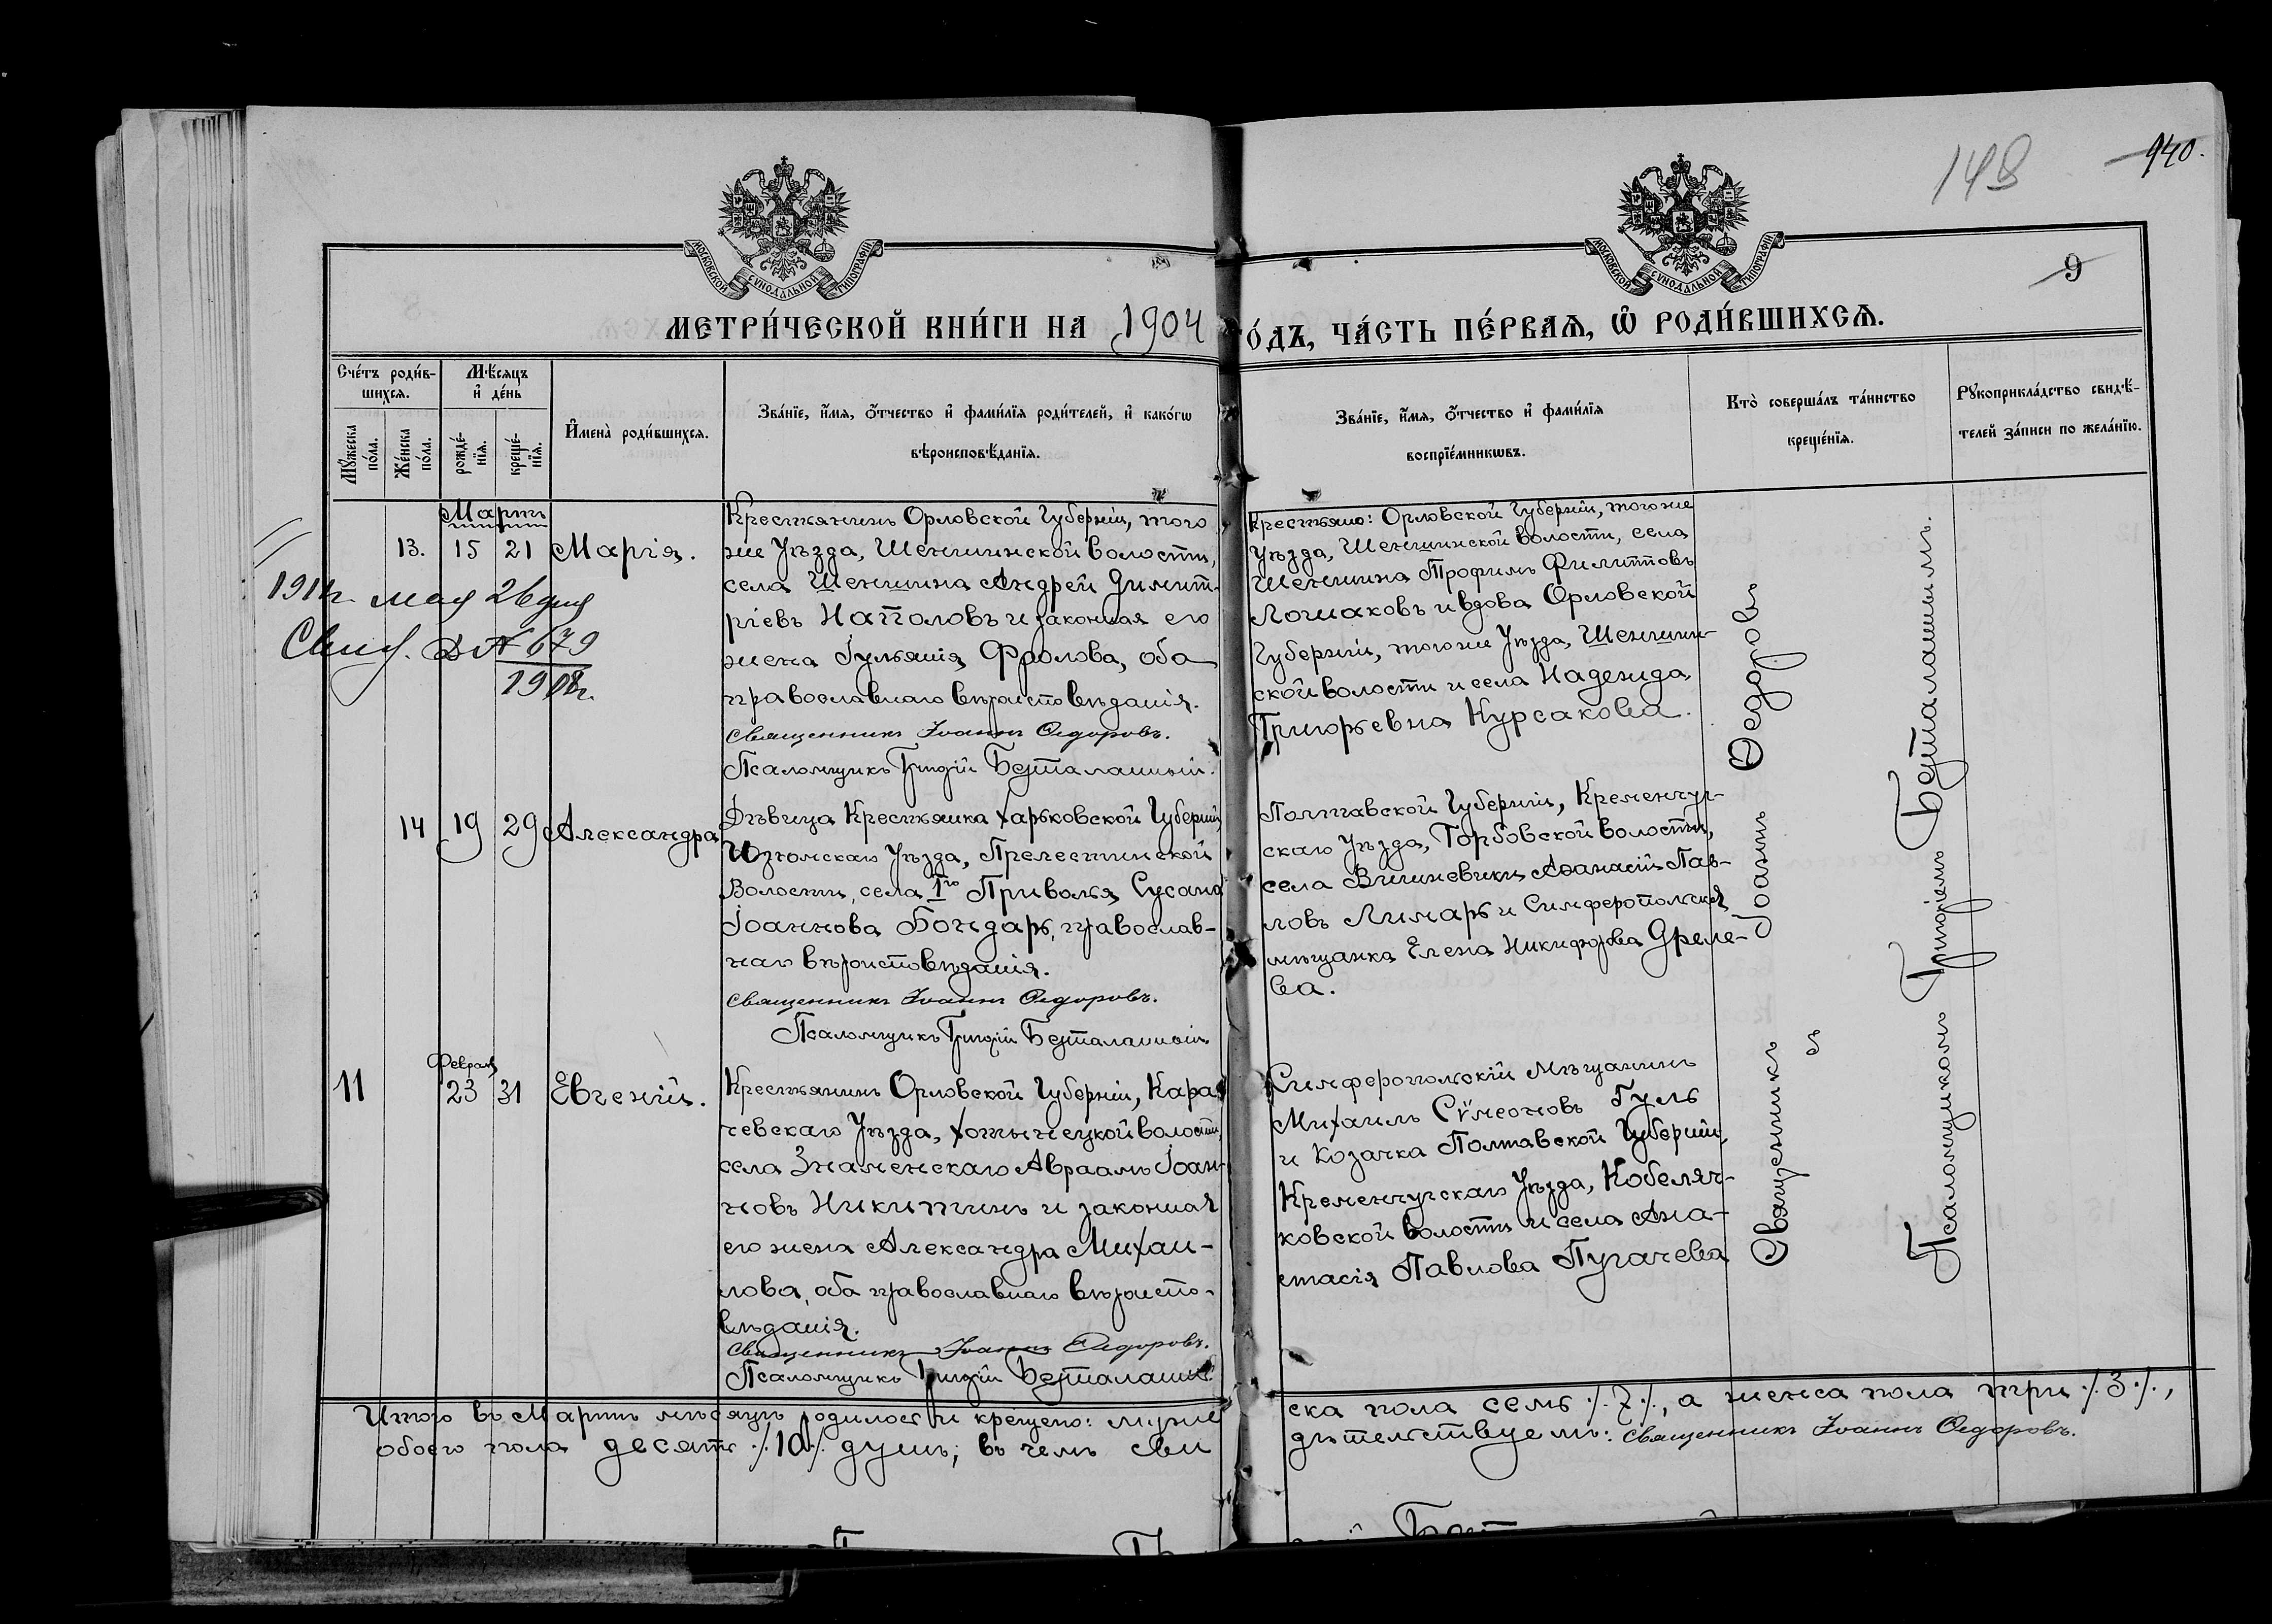 148
940.
9
МОСКОВСКОЙ СѴНОДАЛЬНОЙ ТИПОГРАФІИ
МОСКОВСКОЙ СѴНОДАЛЬНОЙ ТИПОГРАФІИ
МЕТРИ́ЧЕСКОЙ КНИ́ГИ НА 1904 ГО́ДЪ, ЧА́СТЬ ПЕ́РВАѦ, Ѽ РОДИ́ВШИХСѦ.
Сче́тъ роди́в-
шихсѧ.
Мѣ́сѧцъ
и҆ де́нь
Мꙋ́жеска
по́ла.
Же́нска
по́ла.
рожде́-
нїѧ.
креще́-
нїѧ.
И҆мена̀ роди́вшихсѧ.
Зва́нїе, и҆́мѧ, ѻ҆́тчество и҆ фами́лїѧ роди́телей, и҆ како́гѡ
вѣроисповѣ́данїѧ.
Зва́нїе, и҆́мѧ, ѻ҆́тчество и҆ фами́лїѧ
воспрїе́мникѡвъ.
Кто̀ соверша́лъ та́инство
креще́нїѧ.
Рꙋкоприкла́дство свидѣ́-
телей за́писи по жела́нїю.
Мартъ
13. 15 21 Марія.
Крестьянинъ Орловской Губерніи, того
же Уѣзда, Шеншинской волости,
села Шеншина Андрей Димит-
ріевъ Наполовъ и законная его
жена Гульянія Фролова, оба
православнаго вѣроисповѣданія.
Священникъ Іоаннъ Ѳедоровъ.
Псаломщикъ Григорій Безталанный.
Крестьяне: Орловской Губерніи, того же
Уѣзда, Шеншинской волости, села
Шеншина Трофимъ Филипповъ
Лошаковъ и вдова Орловской
Губерніи, того же Уѣзда, Шеншин-
ской волости и села Надежда
Григорьевна Курсакова.
мая 26 дня
№ 679
14 19 29 Александра
Дѣвица Крестьянка Харьковской Губерніи,
Изюмскаго Уѣзда, Прелестинской
Волости, села 1го Приволья Сусана
Іоаннова Бондарь, православ-
наго вѣроисповѣданія.
Священникъ Іоаннъ Ѳедоровъ.
Псаломщикъ Григорій Безталанный.
Полтавской Губерніи, Кременчуг-
скаго Уѣзда, Горбовской волости,
села Вишневики Аѳанасій Пав-
ловъ Лимарь и Симферопольская
мѣщанка Елена Никифорова Дреле-
ва.
Февраля
11 23 31 Евгеній.
Крестьянинъ Орловской Губерніи, Кара-
чевскаго Уѣзда, Хотынецкой волости,
села Знаменскаго Авраамъ Іоан-
новъ Никитинъ и законная
его жена Александра Михаи-
лова, оба православнаго вѣроиспо-
вѣданія.
Священникъ Іоаннъ Ѳедоровъ.
Псаломщикъ Григорій Безталанный.
Симферопольскій Мѣщанинъ
Михаилъ Сѵмеоновъ Гуль
и Козачка Полтавской Губерніи,
Кременчугскаго Уѣзда, Кобеляч-
ковской волости и села Ана-
стасія Павлова Пугачева
Священникъ Іоаннъ Ѳедоровъ
съ
Псаломщикомъ Григоріемъ Безталаннымъ.
Итого въ Мартѣ мѣсяцѣ родилось и крещено: муже
ска пола семь ./.7./., а женска пола три ./.3./.,
обоего пола десять ./.10./. душъ; въ чемъ сви
дѣтельствуемъ: Священникъ Іоаннъ Ѳедоровъ.